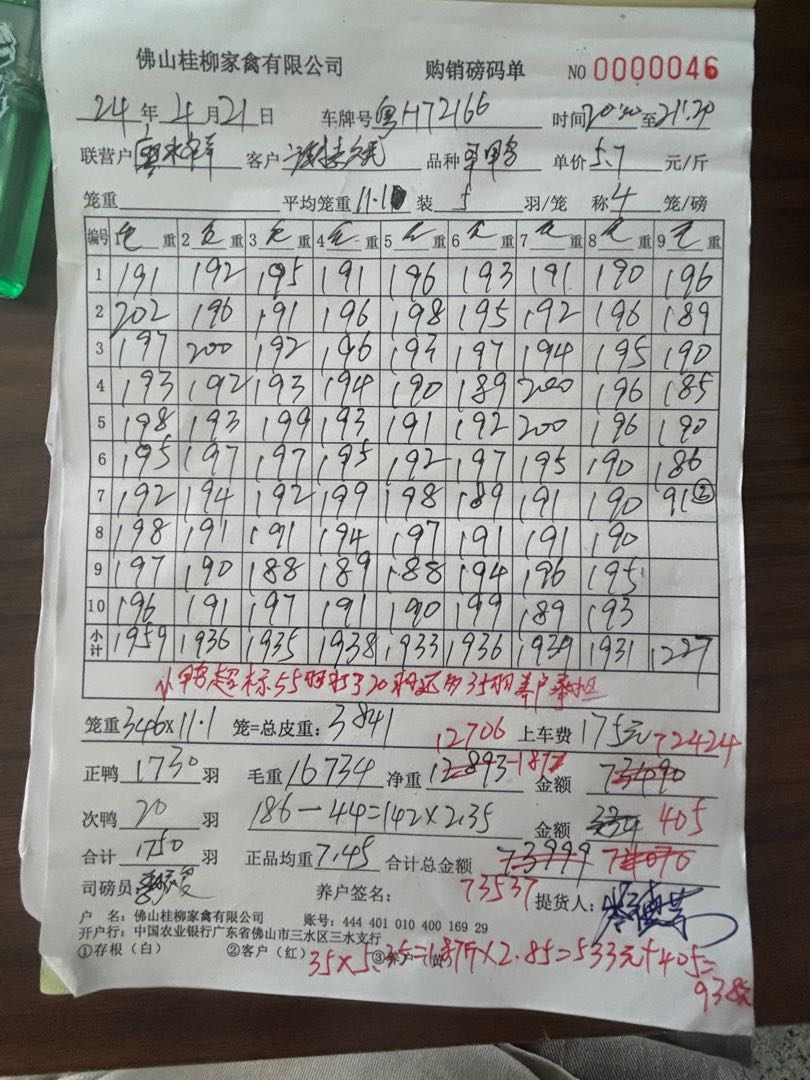 佛山桂柳家禽有限公司 购销磅码单 NO 0000046
24年4月21日 车牌号粤H72166 时间20:40至21:20
联营户 客户 品种 单价5.7元/斤
笼重 平均笼重11.1 装5羽/笼 称4笼/磅
编号 1毛重 2毛重 3毛重 4毛重 5毛重 6毛重 7毛重 8毛重 9毛重
1 191 192 195 191 196 193 191 190 196
2 202 196 191 196 198 195 192 196 189
3 197 200 192 196 193 197 194 195 190
4 193 192 193 194 190 189 200 196 185
5 198 193 199 193 191 192 200 196 190
6 195 197 197 195 192 197 195 190 186
7 192 194 192 199 198 189 191 190 91②
8 198 191 191 194 197 191 191 190
9 197 190 188 189 188 194 196 195
10 196 191 197 191 190 199 189 193
小计 1959 1936 1935 1938 1933 1936 1939 1931 1227
小鸭超标55羽打了20羽还多35羽养户承担
笼重346×11.1笼=总皮重:3841 12706 上车费175元 72424
正鸭1730羽 毛重16734 净重12893-187 金额
次鸭20羽 186-44=142×2.35 金额334 405
合计1750羽 正品均重7.45 合计总金额73999
司磅员 养户签名: 73537 提货人:
户 名:佛山桂柳家禽有限公司 账号:444 401 010 400 169 29
开户行:中国农业银行广东省佛山市三水区三水支行
①存根(白) ②客户(红) ③养户(黄)
35×5.35=187斤×2.85=533元+405=
938元